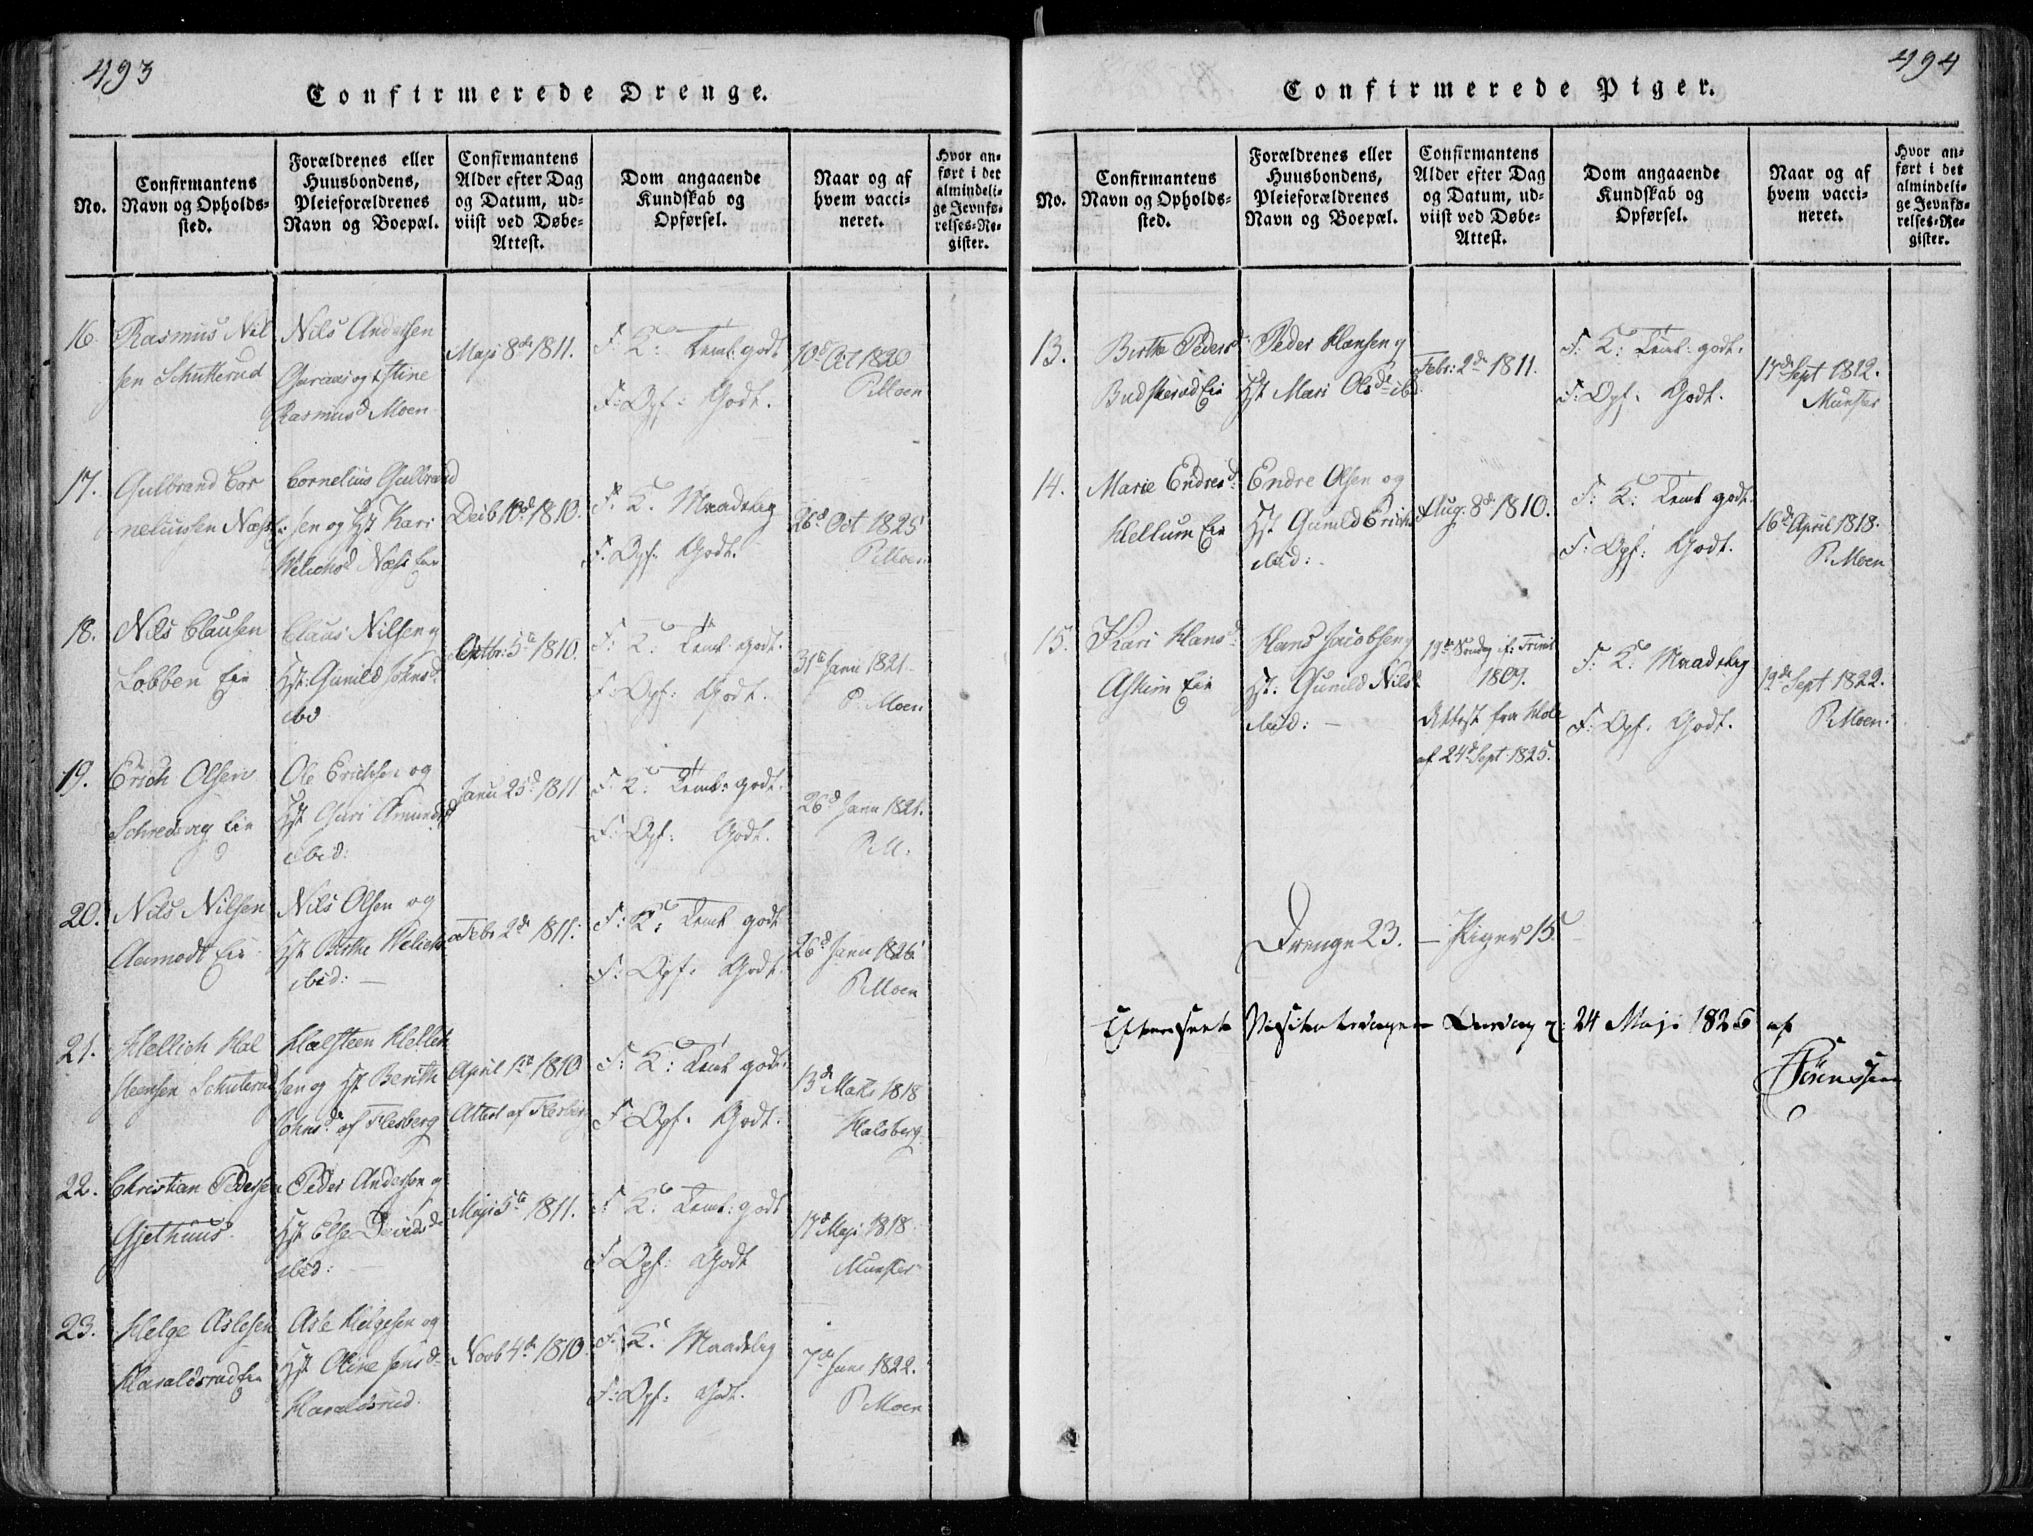 493
Confirmerede Drenge.
No.
Confirmantens Navn og Opholds-sted.
Forældrenes eller Huusbondens, Pleieforældrenes Navn og Boepæl.
Confirmantens Alder efter Dag og Datum, ud-viist ved Døbe-Attest.
Dom angaaende Kundskab og Opførsel.
Naar og af hvem vacci-neret.
Hvor an-ført i det almindeli-ge Jevnfø-relses-Re-gister.
16.
Rasmus Nil
sen Schutterud
Nils Andersen
og Stine
Rasmusd Moen
Maji 8de 1811.
F: K: Teml: godt
F: Opf: Godt.
10d Oct 1820
P. Moen
17.
Gulbrand Cor
neliussen Næss
Cornelius Gulbrand
sen og Hst Kari
Næss Eie
Decb 10d 1810.
F: K: Maadelig
F: Opf: Godt.
26d Oct 1825
P. Moen
18.
Nils Clausen
Lobben Eie
Claus Nilsen og
Hst: Gunild Johnsd
ibid
Octbr: 5te 1810.
F: K: Teml: godt.
F: Opf: Godt.
31te Janu 1821.
P. Moen
19.
Erich Olsen
Schredsvig Eie
Ole Erichsen og
Hst Guri Amundsd
ibid:
Janu 25d 1811
F: K: Teml: godt.
F: Opf: Godt.
26d Janu 1821.
P. M.
20.
Nils Nilsen
Aamodt Eie
Nils Olsen og
Hst Birthe
ibid: —
Febr 2de 1811.
F: K: Teml godt
F: Opf: Godt.
26d Janu 1826
P. Moen
21.
Hellich Hal
steensen Schuterud
Halsteen Hellich
sen og Hst Berith
Johnsd: af Flesberg
April 1te 1810
Attest af Flesberg
F: K: Teml godt
F: Opf. Godt.
13de Mai 1818
Halsberg
22.
Christian Pedersen
Gjethuus
Peder Andersen og
Hst Else Davidsd
ibid: —
Maji 5te 1811.
F: K: Teml: godt
F: Opf: Godt
17d Maji 1818.
Munster
23.
Helge Aslesen
Haraldsrud Eie
Asle Helgesen og
Hst Oline Jensd
Haraldsrud.
Novb 4de 1810
F: K: Maadelig
F: Opf: Godt.
7de Janu 1822.
P. Moen
494
Confirmerede Piger.
No.
Confirmantens Navn og Opholds-sted.
Forældrenes eller Huusbondens, Pleieforældrenes Navn og Boepæl.
Confirmantens Alder efter Dag og Datum, ud-viist ved Døbe-Attest.
Dom angaaende Kundskab og Opførsel.
Naar og af hvem vacci-neret.
Hvor an-ført i det almindeli-ge Jevnfø-relses-Re-gister.
13.
Birthe Pedersd:
Buskerud Eie
Peder Hansen og
Hst Mari Olsd ibd:
Febr: 2de 1811.
F: K: Teml: godt.
F: Opf. Godt.
17d Sept 1812.
Munster
14.
Marie Endresd:
Hellum Eie
Endre Olsen og
Hst Gunild Erichsd
ibid:
Aug: 8d 1810.
F: K: Teml godt.
F: Opf: Godt.
16de April 1818.
P. Moen
15.
Kari Hansd:
Askim Eie
Hans Jacobsen og
Hst: Gunild Nilsd
ibid: —
19de Søndag ef: Trinit
1809.
Attest fra Hole
af 24d Sept 1825.
F: K: Maadelig
F: Opf. Godt.
19de Sept 1822.
P. Moen.
Drenge 23. — Piger 15.
Efterseet Visitatsdagen Onsdag d: 24 Maji 1826 af
Sørenssen